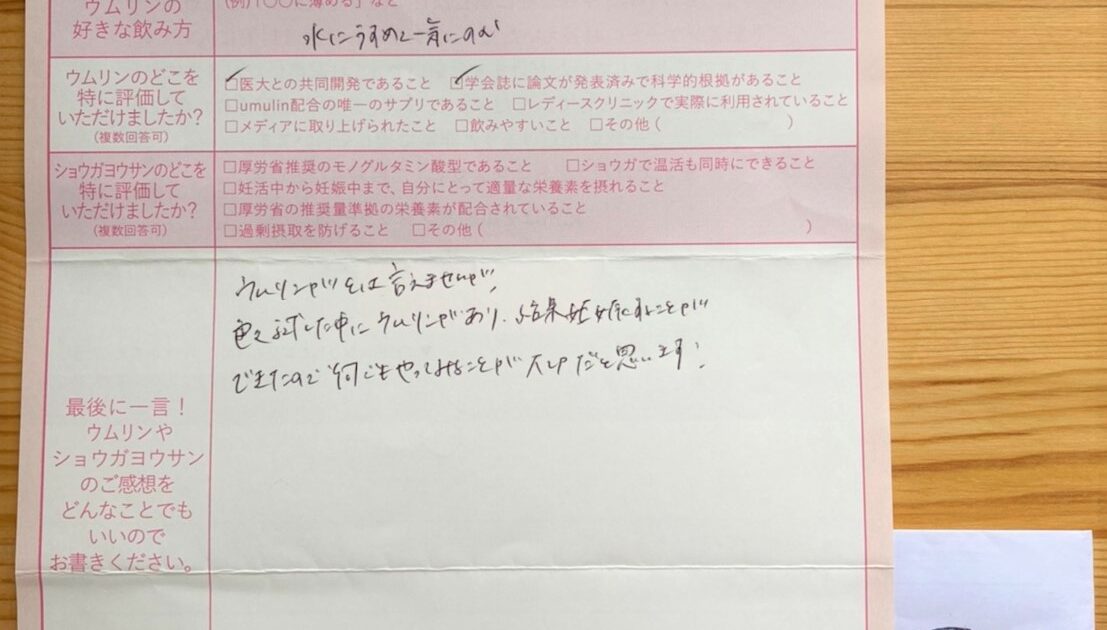 ウムリンの
好きな飲み方
(例)「〇〇に薄める」など
水にうすめて一気にのむ
ウムリンのどこを
特に評価して
いただけましたか?
(複数回答可)
□医大との共同開発であること □学会誌に論文が発表済みで科学的根拠があること
□umulin配合の唯一のサプリであること □レディースクリニックで実際に利用されていること
□メディアに取り上げられたこと □飲みやすいこと □その他( )
ショウガヨウサンのどこを
特に評価して
いただけましたか?
(複数回答可)
□厚労省推奨のモノグルタミン酸型であること □ショウガで温活も同時にできること
□妊活中から妊娠中まで、自分にとって適量な栄養素を摂れること
□厚労省の推奨量準拠の栄養素が配合されていること
□過剰摂取を防げること □その他( )
最後に一言!
ウムリンや
ショウガヨウサン
のご感想を
どんなことでも
いいので
お書きください。
ウムリンがとは言えませんが、
色々試した中にウムリンがあり、結果妊娠することが
できたので何でもやってみることが大切だと思います!